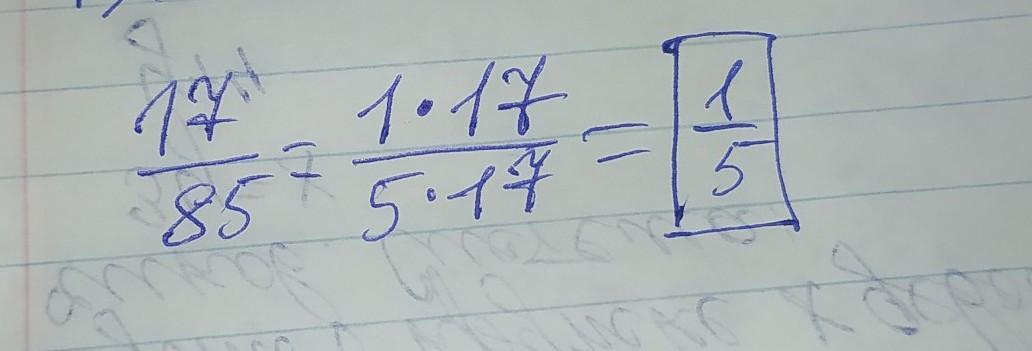 17/85 = 1·17/5·17 = 1/5